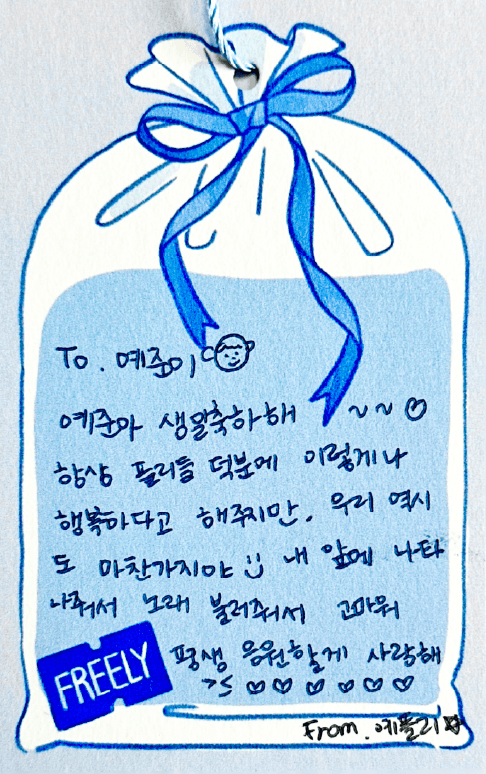 To. 예준이
예준아 생일축하해 ~~♡
항상 플리들 덕분에 이렇게나
행복하다고 해주지만, 우리 역시
도 마찬가지야 :) 내 앞에 나타
나줘서 노래 불러줘서 고마워
평생 응원할게 사랑해
>< ♡♡♡♡♡♡
FREELY
From. 예플리☆